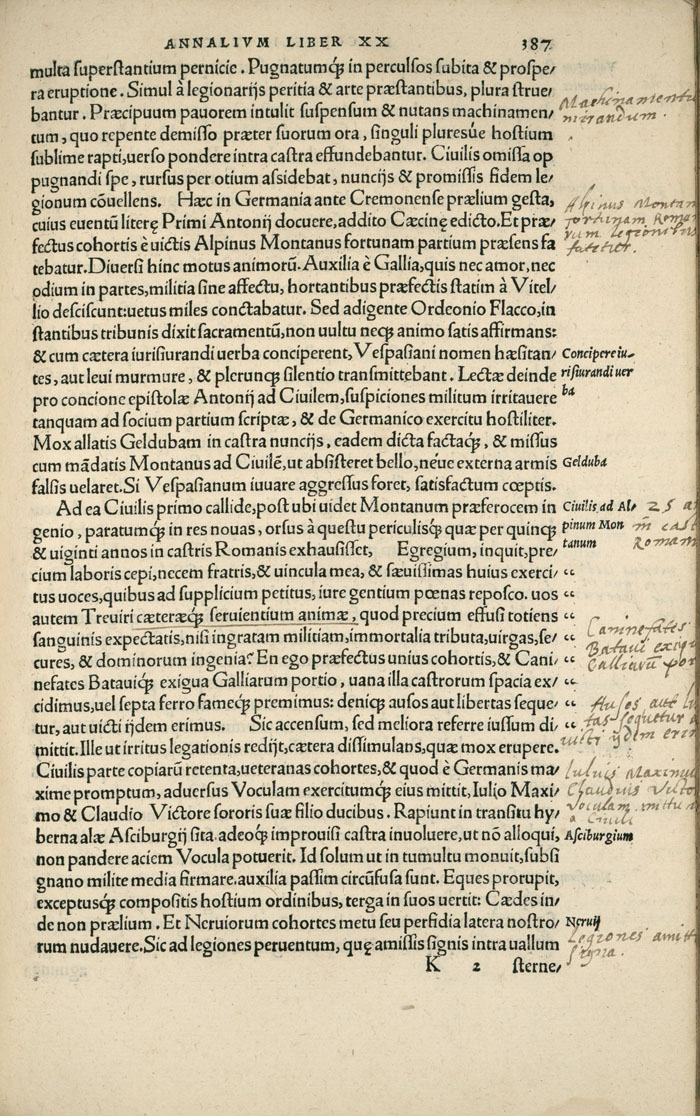 ANNALIVM LIBER XX 387
multa superstantium pernicie. Pugnatumq́ȝ in perculsos subita & prospe/
ra eruptione. Simul à legionarijs peritia & arte præstantibus, plura strue/
bantur. Præcipuum pauorem intulit suspensum & nutans machinamen/
tum, quo repente demisso præter suorum ora, singuli pluresúe hostium
sublime rapti, uerso pondere intra castra effundebantur. Ciuilis omissa op
pugnandi spe, rursus per otium assidebat, nuncijs & promissis fidem le/
gionum cōuellens. Hæc in Germania ante Cremonense prælium gesta,
cuius euentū literę Primi Antonij docuere, addito Cæcinę edicto. Et præ/
fectus cohortis è uictis Alpinus Montanus fortunam partium præsens fa
tebatur. Diuersi hinc motus animorū. Auxilia è Gallia, quis nec amor, nec
odium in partes, militia sine affectu, hortantibus præfectis statim à Vitel/
lio desciscunt: uetus miles cōctabatur. Sed adigente Ordeonio Flacco, in
stantibus tribunis dixit sacramentū, non uultu neqȝ animo satis affirmans:
& cum cætera iurisiurandi uerba conciperent, Vespasiani nomen hæsitan/
tes, aut leui murmure, & plerunqȝ silentio transmittebant. Lectæ deinde
pro concione epistolæ Antonij ad Ciuilem, suspiciones militum irritauere
tanquam ad socium partium scriptæ, & de Germanico exercitu hostiliter.
Mox allatis Geldubam in castra nuncijs, eadem dicta factaq́ȝ, & missus
cum mādatis Montanus ad Ciuilē, ut absisteret bello, néue externa armis
falsis uelaret. Si Vespasianum iuuare aggressus foret, satisfactum cœptis.
Ad ea Ciuilis primo callide, post ubi uidet Montanum præferocem in
genio, paratumq́ȝ in res nouas, orsus à questu periculisq́ȝ quæ per quinqȝ
& uiginti annos in castris Romanis exhausisset, Egregium, inquit, pre/
cium laboris cepi, necem fratris, & uincula mea, & sæuissimas huius exerci/
tus uoces, quibus ad supplicium petitus, iure gentium pœnas reposco. uos
autem Treuiri cæteræq́ȝ seruientium animæ, quod precium effusi totiens
sanguinis expectatis, nisi ingratam militiam, immortalia tributa, uirgas, se/
cures, & dominorum ingenia? En ego præfectus unius cohortis, & Cani/
nefates Batauiq́ȝ exigua Galliarum portio, uana illa castrorum spacia ex/
cidimus, uel septa ferro fameq́ȝ premimus: deniqȝ ausos aut libertas seque/
tur, aut uicti ijdem erimus. Sic accensum, sed meliora referre iussum di/
mittit. Ille ut irritus legationis redijt, cætera dissimulans, quæ mox erupere.
Ciuilis parte copiarū retenta, ueteranas cohortes, & quod è Germanis ma/
xime promptum, aduersus Voculam exercitumq́ȝ eius mittit, Iulio Maxi/
mo & Claudio Victore sororis suæ filio ducibus. Rapiunt in transitu hy/
berna alæ Asciburgij sita. adeoq́ȝ improuisi castra inuoluere, ut nō alloqui,
non pandere aciem Vocula potuerit. Id solum ut in tumultu monuit, subsi
gnano milite media firmare. auxilia passim circūfusa sunt. Eques prorupit,
exceptusq́ȝ compositis hostium ordinibus, terga in suos uertit: Cædes in/
de non prælium. Et Neruiorum cohortes metu seu perfidia latera nostro/
rum nudauere. Sic ad legiones peruentum, quę amissis signis intra uallum
K 2 sterne/
Machinamentū
mirandum.
Alpinus Montan
fortunam Roma
rum legionibus
fatetur.
Concipere iu-
risiurandi uer
ba
Gelduba
Ciuilis ad Al/
pinum Mon
tanum
25 a
in cast
Romani
“
“
“
“
“
“
“
“
Caninefates
Bataui exigu
Galliarū por
Ausos aut li
tas sequetur a
uicti ijdem erim
Iulius Maximus
Claudius Victo
Voculam mittun
a Ciuili
Asciburgium
Neruij
Legiones amitt
signa.